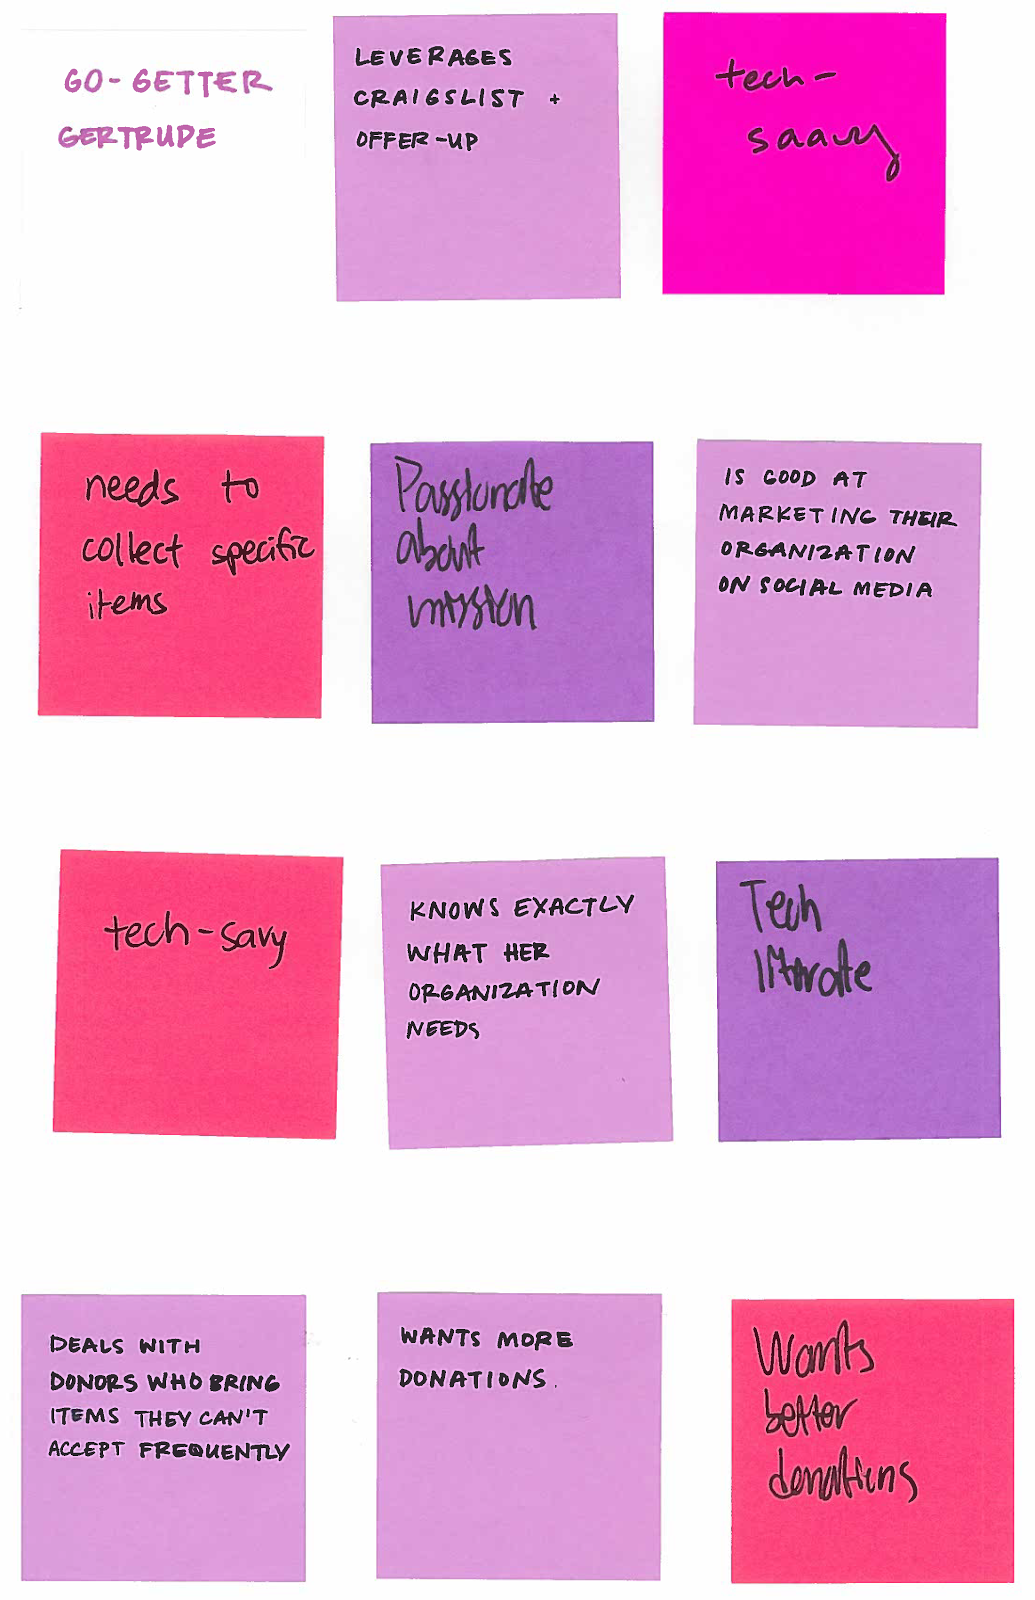 GO-GETTER
GERTRUDE
LEVERAGES
CRAIGSLIST +
OFFER-UP
tech-
saavy
needs to
collect specific
items
Passionate
about
mission
IS GOOD AT
MARKETING THEIR
ORGANIZATION
ON SOCIAL MEDIA
tech-savy
KNOWS EXACTLY
WHAT HER
ORGANIZATION
NEEDS
Tech
literate
DEALS WITH
DONORS WHO BRING
ITEMS THEY CAN'T
ACCEPT FREQUENTLY
WANTS MORE
DONATIONS.
Wants
better
donations